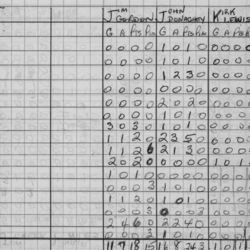 JIM JOHN KIRK
GORDON DONAGHEY LEWIS
G A PTS PIM G A PTS PIM G A PTS
0 0 0 0 1 0 1 0 0 0 0
0 0 0 0 1 0 1 0 0 0 0
0 0 0 0 1 2 3 0 0 0 0
0 0 0 0 0 0 0 0 0 0 0
0 0 0 0 2 0 2 0 0 0 0
0 0 0 0 1 0 1 0
3 0 3 0 1 0 1 0
1 1 2 0 2 3 5 0 0 0 0
1 1 2 6 2 1 3 0 0 0 0
2 0 2 0 0 0 0 0
1 0 1 0 0 0 0 0 0 0 0
0 0 0 3 1 0 1 0 0 0 0
1 1 2 0 1 0 1 0 0 0 0
0 0 0 3 0 0 0 0 0
2 4 6 0 2 2 4 0 0 0 0
0 0 0 3 1 0 1 0 0 0 0
11 7 18 15 16 8 24 3